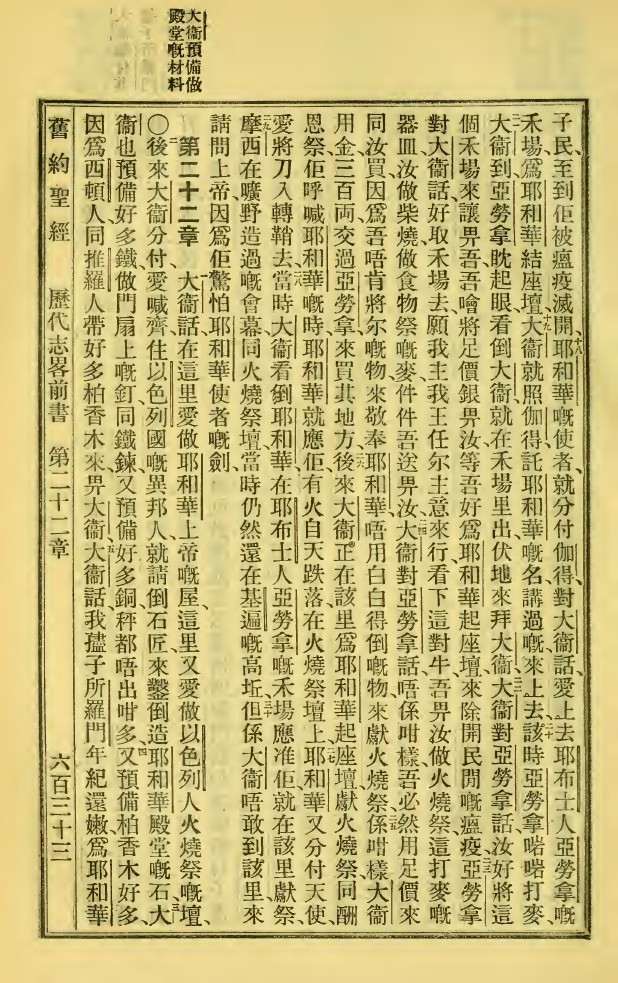 大衞預備做
殿堂嘅材料
子民、至到佢被瘟疫滅開、十八耶和華嘅使者、就分付伽得、對大衞話、愛上去耶布士人亞勞拿嘅
禾場、爲耶和華結座壇、十九大衞就照伽得託耶和華嘅名講過嘅來上去、二十該時亞勞拿啱啱打麥、
二一大衞到亞勞拿、眈起眼看倒大衞、就在禾場里出、伏地來拜大衞、二二大衞對亞勞拿話、汝好將這
個禾場來讓畀吾、吾噲將足價銀畀汝等吾好爲耶和華起座壇、來除開民間嘅瘟疫、二三亞勞拿
對大衞話、好取禾場去、願我主我王任尔主意來行、看下、這對牛、吾畀汝做火燒祭、這打麥嘅
器皿、汝做柴燒、做食物祭嘅麥、件件吾送畀汝、二四大衞對亞勞拿話、唔係咁樣、吾必然用足價來
同汝買、因爲吾唔肯將尔嘅物來敬奉耶和華、唔用白白得倒嘅物來獻火燒祭、二五係咁樣大衞
用金三百両、交過亞勞拿、來買其地方、二六後來大衞正在該里爲耶和華起座壇、獻火燒祭、同酬
恩祭、佢呼喊耶和華嘅時、耶和華就應佢、有火自天跌落在火燒祭壇上、二七耶和華又分付天使、
愛將刀入轉鞘去、二八當時大衞看倒耶和華、在耶布士人亞勞拿嘅禾場應准佢、就在該里獻祭、
二九摩西在曠野造過嘅會幕、同火燒祭壇、當時仍然還在基遍嘅高坵、三十但係大衞唔敢到該里來
請問上帝、因爲佢驚怕耶和華使者嘅劍、
第二十二章 一大衞話、在這里愛做耶和華上帝嘅屋、這里又愛做以色列人火燒祭嘅壇、
〇二後來大衞分付、愛喊齊住以色列國嘅異邦人、就請倒石匠來鑿倒造耶和華殿堂嘅石、三大
衞也預備好多鐵、做門扇上嘅釘、同鐵鍊、又預備好多銅、秤都唔出咁多、四又預備柏香木好多、
因爲西頓人、同推羅人、帶好多柏香木來畀大衞、五大衞話、我孻子所羅門、年紀還嫩、爲耶和華
舊約聖經 歷代志畧前書 第二十二章 六百三十三